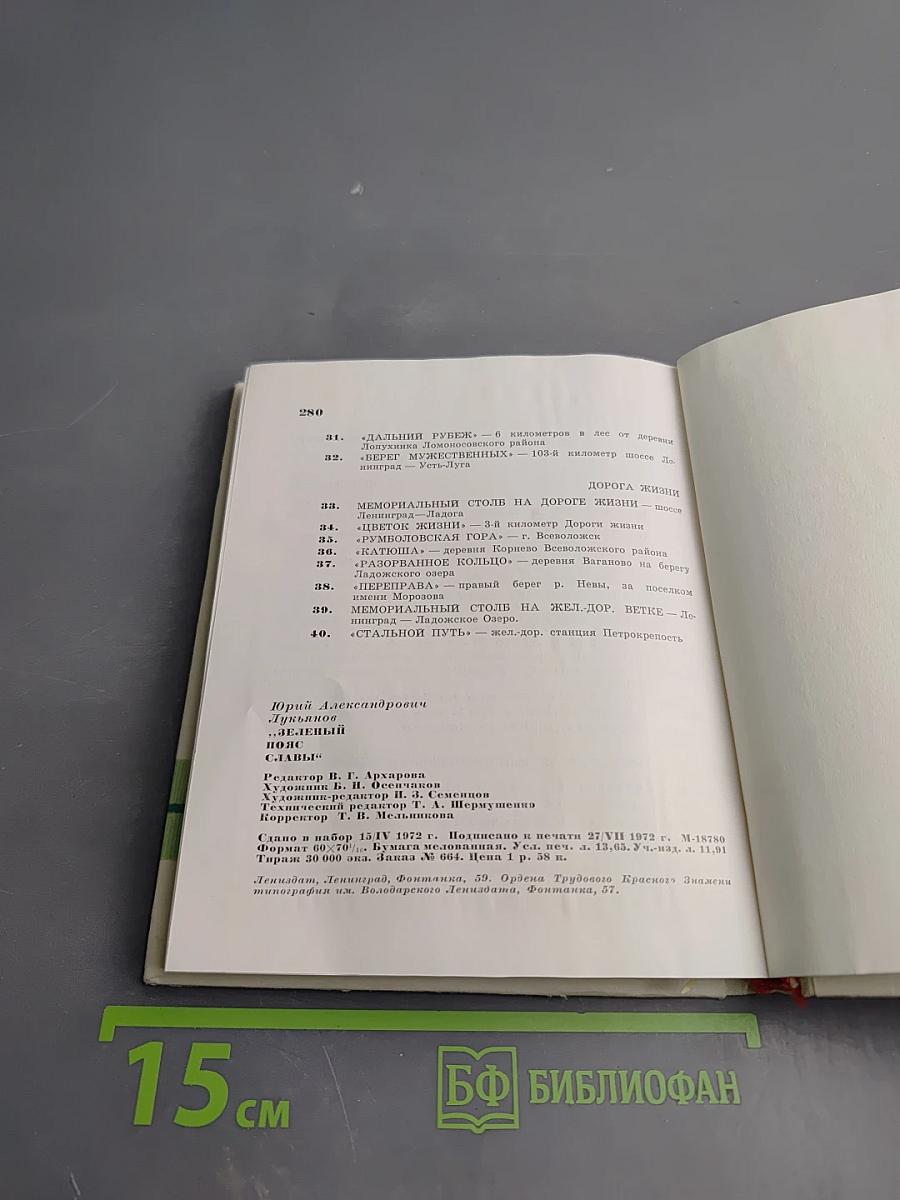 280
31. «ДАЛЬНИЙ РУБЕЖ» — 6 километров в лес от деревни
Лопухинка Ломоносовского района
32. «БЕРЕГ МУЖЕСТВЕННЫХ» — 103-й километр шоссе Ле-
нинград — Усть-Луга
ДОРОГА ЖИЗНИ
33. МЕМОРИАЛЬНЫЙ СТОЛБ НА ДОРОГЕ ЖИЗНИ — шоссе
Ленинград—Ладога
34. «ЦВЕТОК ЖИЗНИ» — 3-й километр Дороги жизни
35. «РУМБОЛОВСКАЯ ГОРА» — г. Всеволожск
36. «КАТЮША» — деревня Корнево Всеволожского района
37. «РАЗОРВАННОЕ КОЛЬЦО» — деревня Ваганово на берегу
Ладожского озера
38. «ПЕРЕПРАВА» — правый берег р. Невы, за поселком
имени Морозова
39. МЕМОРИАЛЬНЫЙ СТОЛБ НА ЖЕЛ.-ДОР. ВЕТКЕ — Ле-
нинград — Ладожское Озеро.
40. «СТАЛЬНОЙ ПУТЬ» — жел.-дор. станция Петрокрепость
Юрий Александрович
Лукьянов
„ЗЕЛЕНЫЙ
ПОЯС
СЛАВЫ“
Редактор В. Г. Архарова
Художник Б. Н. Осенчаков
Художник-редактор И. З. Семенцов
Технический редактор Т. А. Шермушенко
Корректор Т. В. Мельникова
Сдано в набор 15/IV 1972 г. Подписано к печати 27/VII 1972 г. М-18780
Формат 60×70¹/₁₆. Бумага мелованная. Усл. печ. л. 13,65. Уч.-изд. л. 11,91
Тираж 30 000 экз. Заказ № 664. Цена 1 р. 58 к.
Лениздат, Ленинград, Фонтанка, 59. Ордена Трудового Красного Знамени
типография им. Володарского Лениздата, Фонтанка, 57.
15 см
БФ БИБЛИОФАН